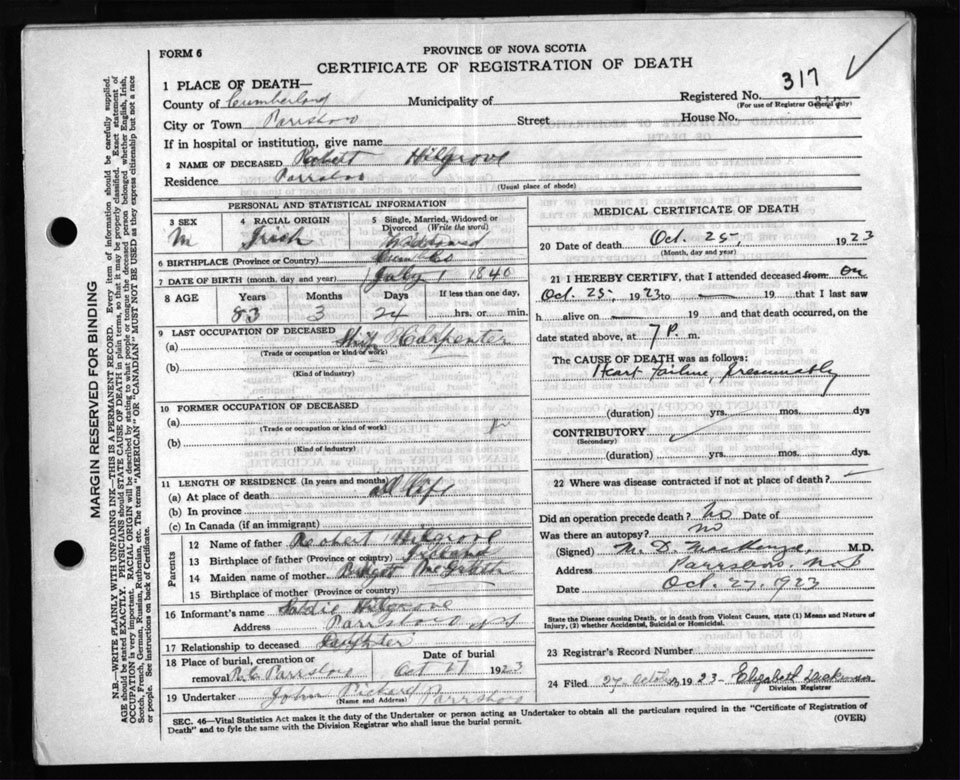 FORM 6
PROVINCE OF NOVA SCOTIA
CERTIFICATE OF REGISTRATION OF DEATH
317
1 PLACE OF DEATH—
County of Cumberland Municipality of Registered No.
(For use of Registrar General only)
City or Town Parrsboro Street House No.
If in hospital or institution, give name
2 NAME OF DECEASED Robert Hilgrove
Residence Parrsboro
(Usual place of abode)
PERSONAL AND STATISTICAL INFORMATION
3 SEX 4 RACIAL ORIGIN 5 Single, Married, Widowed or Divorced (Write the word)
M Irish Widowed
6 BIRTHPLACE (Province or Country) Cum Co
7 DATE OF BIRTH (month, day and year) July 1 1840
8 AGE Years Months Days If less than one day,
83 3 24 hrs. or min.
9 LAST OCCUPATION OF DECEASED
(a) Ship Carpenter
(Trade or occupation or kind of work)
(b)
(Kind of industry)
10 FORMER OCCUPATION OF DECEASED
(a)
(Trade or occupation or kind of work)
(b)
(Kind of industry)
11 LENGTH OF RESIDENCE (In years and months)
(a) At place of death all life
(b) In province
(c) In Canada (if an immigrant)
Parents
12 Name of father Robert Hilgrove
13 Birthplace of father (Province or country) Ireland
14 Maiden name of mother Bridget McGrath
15 Birthplace of mother (Province or country)
16 Informant's name Sadie Hilgrove
Address Parrsboro N.S.
17 Relationship to deceased Daughter
18 Place of burial, cremation or removal R.C. Parrsboro Date of burial Oct 27 1923
19 Undertaker John Pickard Parrsboro
(Name and Address)
MEDICAL CERTIFICATE OF DEATH
20 Date of death Oct. 25, 1923
(Month, day and year)
21 I HEREBY CERTIFY, that I attended deceased from on
Oct. 25, 1923 to — 19 that I last saw
h alive on — 19 and that death occurred, on the
date stated above, at 7 P. m.
The CAUSE OF DEATH was as follows:
Heart Failure, presumably
(duration) yrs. mos. dys
CONTRIBUTORY
(Secondary)
(duration) yrs. mos. dys.
22 Where was disease contracted if not at place of death? —
Did an operation precede death? No Date of
Was there an autopsy? No
(Signed) M. D. MacKenzie, M.D.
Address Parrsboro, N.S
Date Oct. 27, 1923
State the Disease causing Death, or in death from Violent Causes, state (1) Means and Nature of
Injury, (2) whether Accidental, Suicidal or Homicidal.
23 Registrar's Record Number
24 Filed 27 October 1923 Elizabeth
Division Registrar
SEC. 46—Vital Statistics Act makes it the duty of the Undertaker or person acting as Undertaker to obtain all the particulars required in the "Certificate of Registration of
Death" and to fyle the same with the Division Registrar who shall issue the burial permit. (OVER)
MARGIN RESERVED FOR BINDING
N.B.—WRITE PLAINLY WITH UNFADING INK—THIS IS A PERMANENT RECORD. Every item of information should be carefully supplied.
AGE should be stated EXACTLY. PHYSICIANS should STATE CAUSE OF DEATH in plain terms, so that it may be properly classified. Exact statement of
OCCUPATION is very important. RACIAL ORIGIN will be described by stating to what people or tongue the deceased person belonged whether English, Irish,
Scotch, French, German, Russian, Ruthenian, etc. The terms "AMERICAN" OR "CANADIAN" MUST NOT BE USED as they express citizenship but not a race
or people. See instructions on back of Certificate.